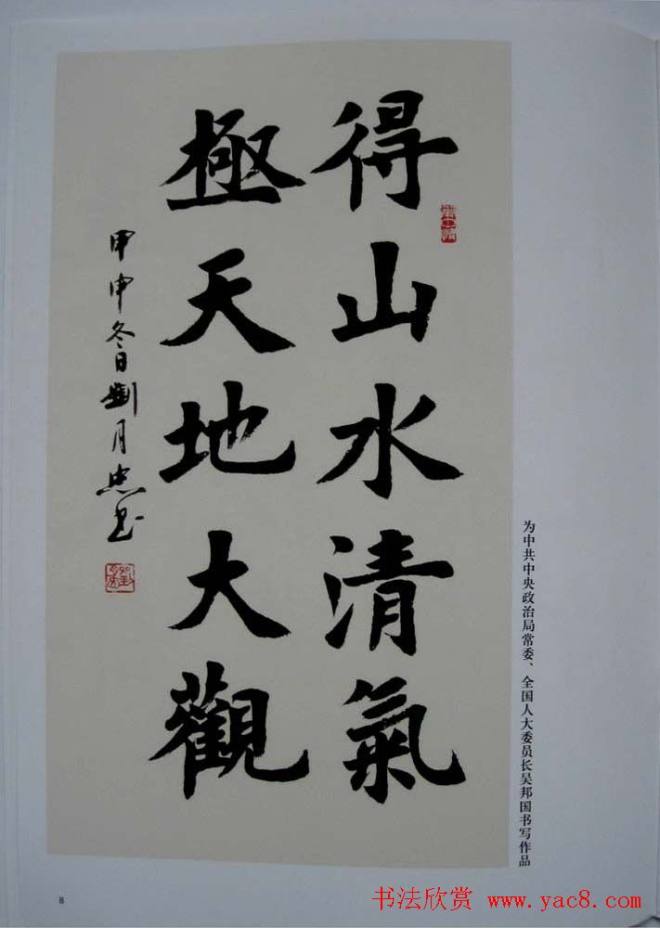 得山水清氣
極天地大觀
甲申冬日劉月忠书
为中共中央政治局常委、全国人大委员长吴邦国书写作品
8
书法欣赏 www.yac8.com